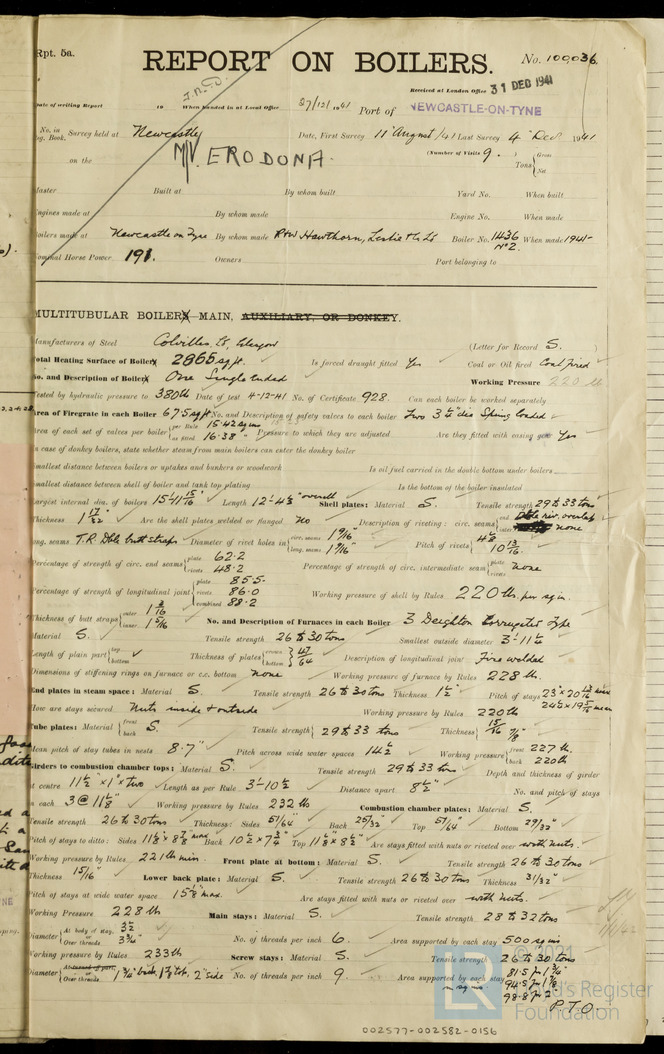 Rpt. 5a.
REPORT ON BOILERS.
No. 100036.
Received at London Office 31 DEC 1941
Date of writing Report 19 When handed in at Local Office 27/12/1941 Port of NEWCASTLE-ON-TYNE
No. in Reg. Book. Survey held at Newcastle Date, First Survey 11 August /41 Last Survey 4 Dec 1941
on the M/V. ERODONA. (Number of Visits 9. ) Tons { Gross Net
Master Built at By whom built Yard No. When built
Engines made at By whom made Engine No. When made
Boilers made at Newcastle on Tyne By whom made R & W Hawthorn, Leslie & Co Ld Boiler No. 1436 No 2. When made 1941-
Nominal Horse Power 191. Owners Port belonging to
MULTITUBULAR BOILERS MAIN, AUXILIARY, OR DONKEY.
Manufacturers of Steel Colvilles, Ld, Glasgow (Letter for Record S. )
Total Heating Surface of Boilers 2865 sq ft. Is forced draught fitted Yes Coal or Oil fired Coal fired
No. and Description of Boilers One Single Ended Working Pressure 220 lb
Tested by hydraulic pressure to 380 lb Date of test 4-12-41 No. of Certificate 928. Can each boiler be worked separately
Area of Firegrate in each Boiler 67.5 sq ft No. and Description of safety valves to each boiler Two 3½" dia Spring loaded
Area of each set of valves per boiler { per Rule 15.42 sq ins as fitted 16.38 " Pressure to which they are adjusted Are they fitted with easing gear Yes
In case of donkey boilers, state whether steam from main boilers can enter the donkey boiler
Smallest distance between boilers or uptakes and bunkers or woodwork Is oil fuel carried in the double bottom under boilers
Smallest distance between shell of boiler and tank top plating Is the bottom of the boiler insulated
Largest internal dia. of boilers 15'-11 15/16" Length 12'-4½" overall Shell plates: Material S. Tensile strength 29 to 33 tons
Thickness 1 17/32" Are the shell plates welded or flanged no Description of riveting: circ. seams { end Dble riv. overlap inter. none
Long. seams T.R. Dble butt straps Diameter of rivet holes in { circ. seams 1 9/16" long. seams 1 9/16" Pitch of rivets { 4.8 10 13/16"
Percentage of strength of circ. end seams { plate 62.2 rivets 48.2 Percentage of strength of circ. intermediate seam { plate rivets none
Percentage of strength of longitudinal joint { plate 85.5. rivets 86.0 combined 88.2 Working pressure of shell by Rules 220 lb. per sq in.
Thickness of butt straps { outer 1 3/16 inner 1 5/16 No. and Description of Furnaces in each Boiler 3 Deighton Corrugated Type
Material S. Tensile strength 26 to 30 tons Smallest outside diameter 3'-11¼
Length of plain part { top bottom Thickness of plates { crown bottom 47/64 Description of longitudinal joint Fire welded
Dimensions of stiffening rings on furnace or c.c. bottom none Working pressure of furnace by Rules 228 lb.
End plates in steam space: Material S. Tensile strength 26 to 30 tons Thickness 1½" Pitch of stays
How are stays secured Nuts inside & outside Working pressure by Rules 220 lb
Tube plates: Material { front back S. Tensile strength { 29 to 33 tons Thickness { 15/16" 7/8"
Mean pitch of stay tubes in nests 8.7" Pitch across wide water spaces 14½ Working pressure { front 227 lb. back 220 lb
Girders to combustion chamber tops: Material S. Tensile strength 29 to 33 tons Depth and thickness of girder
at centre 11½" x 1" x two Length as per Rule 3'-10½ Distance apart 8½" No. and pitch of stays
in each 3 @ 11⅛" Working pressure by Rules 232 lb Combustion chamber plates: Material S.
Tensile strength 26 to 30 tons Thickness: Sides 51/64" Back 25/32" Top 51/64" Bottom 29/32"
Pitch of stays to ditto: Sides 11⅛ x 8⅞ max Back 10½ x 9¾ Top 11⅛ x 8½" Are stays fitted with nuts or riveted over with nuts.
Working pressure by Rules 221 lb min. Front plate at bottom: Material S. Tensile strength 26 to 30 tons
Thickness 15/16" Lower back plate: Material S. Tensile strength 26 to 30 tons Thickness 31/32"
Pitch of stays at wide water space 15⅝ max. Are stays fitted with nuts or riveted over with nuts.
Working Pressure 228 lb Main stays: Material S. Tensile strength 28 to 32 tons
Diameter { At body of stay, 3½ or Over threads 3¾" No. of threads per inch 6. Area supported by each stay 500 sq ins
Working pressure by Rules 233 lb Screw stays: Material S. Tensile strength 26 to 30 tons
Diameter { or Over threads 1¾" back 1⅞ top, 2" side No. of threads per inch 9. Area supported by each stay in sq ins 81.5 for 1¾" 94.5 for 1⅞ 98.8 for 2"
P.T.O.
© 2021
Lloyd's Register
Foundation
LR
002577-002582-0156